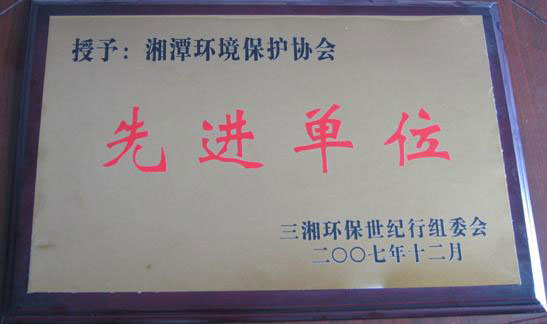 授予：湘潭环境保护协会
先进单位
三湘环保世纪行组委会
二〇〇七年十二月